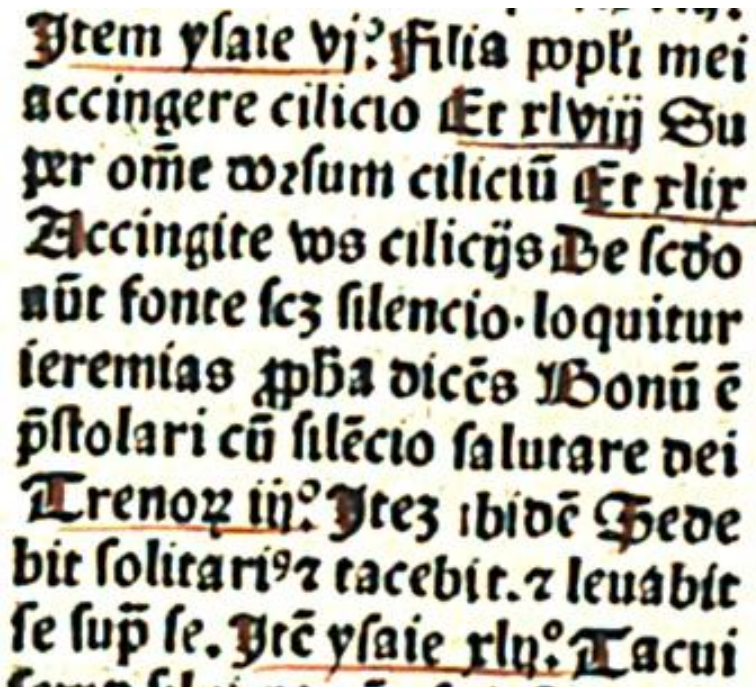 Item ysaie vj.° Filia pop̄lı mei
accingere cilicio Et xlviij Su
per om̄e dorsum ciliciū Et xlix
Accingite vos cilicijs De scd̄o
aūt fonte scꝫ silencio·loquitur
ieremias ꝓph̄a dicēs Bonū ē
p̄stolari cū silēcio salutare dei
Trenoꝝ iij.° Iteꝫ ibidē Sede
bit solitariꝰ⁊ tacebit.⁊ leuabit
se sup̄ se. Itē ysaie xlij.° Tacui